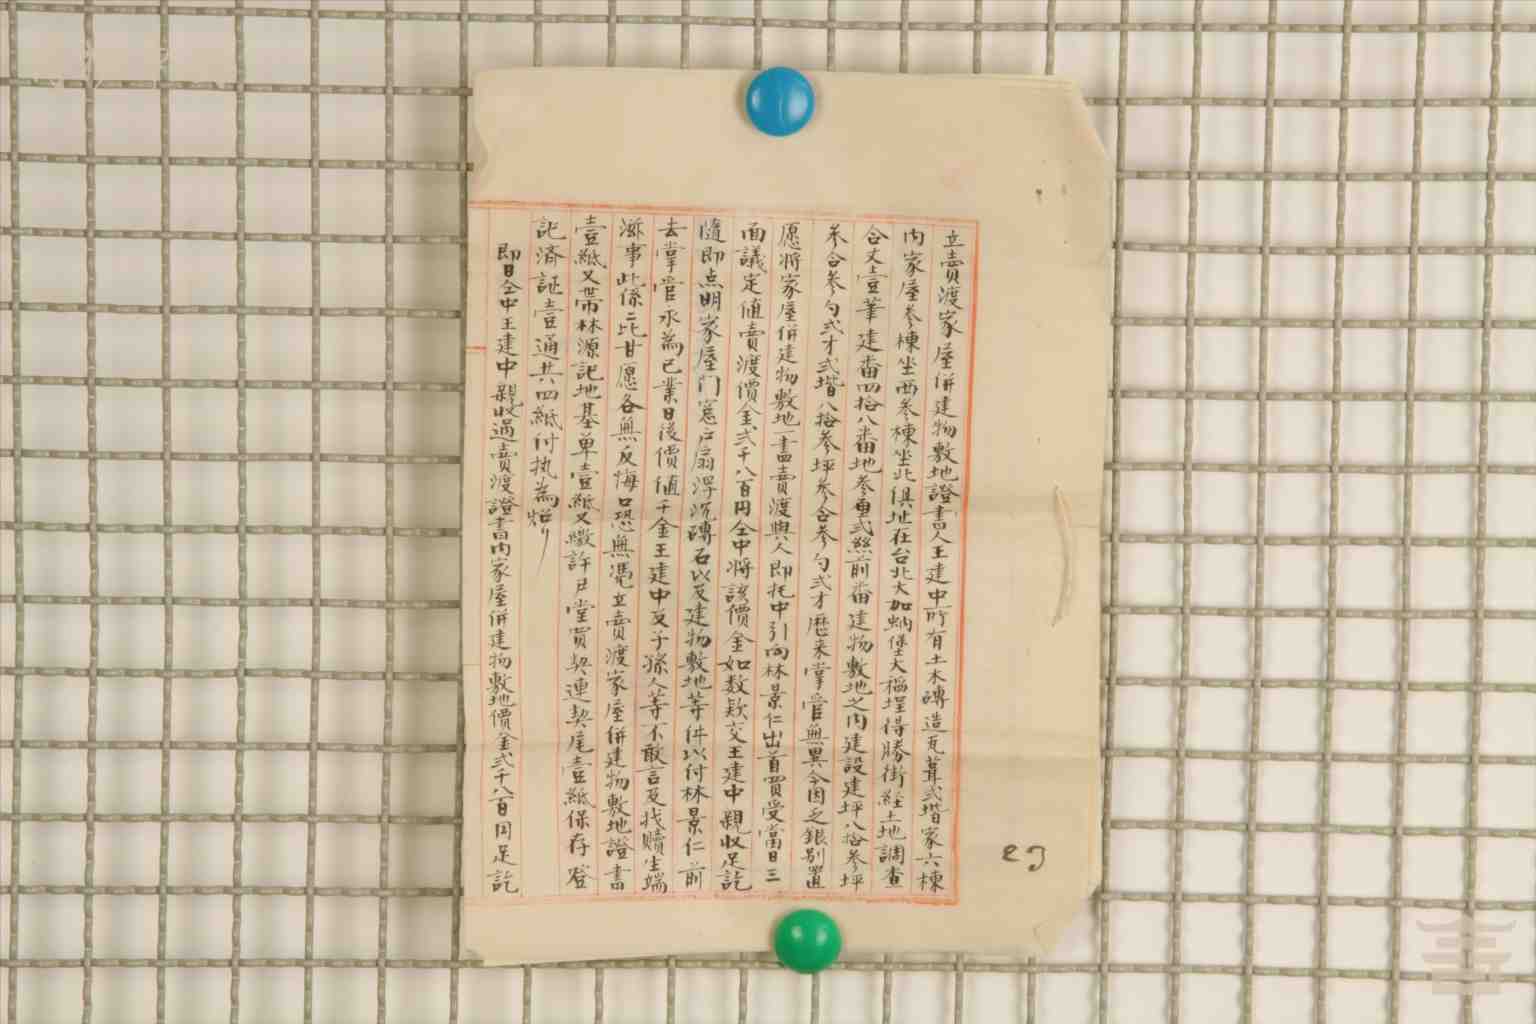 立賣渡家屋併建物敷地證書人王建中所有土木磚造瓦葺弍堦家六棟
內家屋參棟坐西參棟坐北俱址在台北大加蚋堡大稻埕得勝街經土地調查
合丈壹筆建番四拾八番地參重弍然前番建物敷地之內建設建坪八拾參坪
參合參勺弍才弍堦八拾參坪參合參勺弍才歷来掌管無異今因乏銀别置
愿將家屋併建物敷地一盡賣渡與人即托中引向林景仁出首買受當日三
面議定值賣渡價金弍千八百円仝中將該價金如数欵交王建中親收足訖
隨即点明家屋门窓户扇浮沉磚石以及建物敷地等件以付林景仁前
去掌管永為己業日後價值千金王建中及子孫人等不敢言及找贖生端
滋事此係二比甘愿各無反悔口恐無憑立賣渡家屋併建物敷地證書
壹紙又帶林源記地基单壹紙又繳許尸堂買契連契尾壹紙保存登
記済証壹通共四紙付执為炤
即日仝中王建中親收過賣渡證書內家屋併建物敷地價金弍千八百円足訖